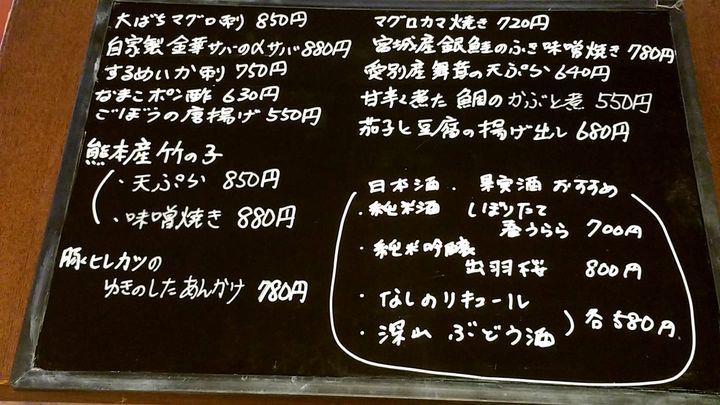 大ばちマグロ刺 850円
自家製 金華サバの〆サバ 880円
するめいか刺 750円
なまこポン酢 630円
ごぼうの唐揚げ 550円
熊本産 竹の子
・天ぷら 850円
・味噌焼き 880円
豚ヒレカツの
ゆきのしたあんかけ 780円
マグロカマ焼き 720円
宮城産銀鮭のふき味噌焼き 780円
愛別産 舞茸の天ぷら 640円
甘辛く煮た 鯛のかぶと煮 550円
茄子と豆腐の揚げ出し 680円
日本酒・果実酒 おすすめ
・純米酒 しぼりたて
春うらら 700円
・純米吟醸
出羽桜 800円
・なしのリキュール
・深山 ぶどう酒 各580円